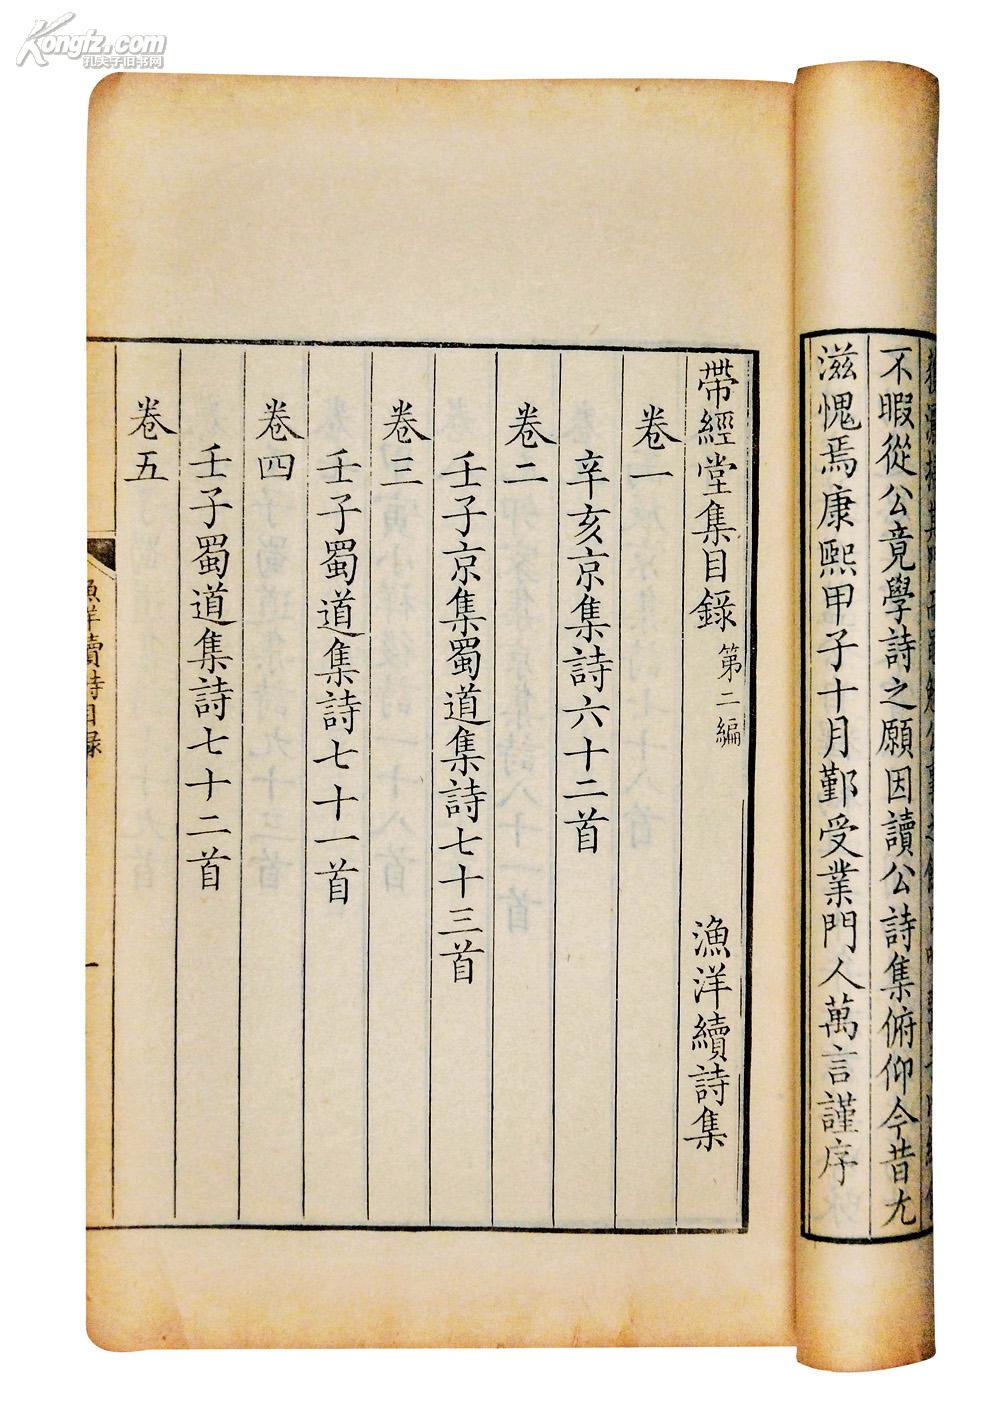 Kongfz.com
孔夫子旧书网
不暇從公竟學詩之願因讀公詩集俯仰今昔尤
滋愧焉康熙甲子十月鄞受業門人萬言謹序
帶經堂集目錄 第二編 漁洋續詩集
卷一
辛亥京集詩六十二首
卷二
壬子京集蜀道集詩七十三首
卷三
壬子蜀道集詩七十一首
卷四
壬子蜀道集詩七十二首
卷五
漁洋續詩目錄
一